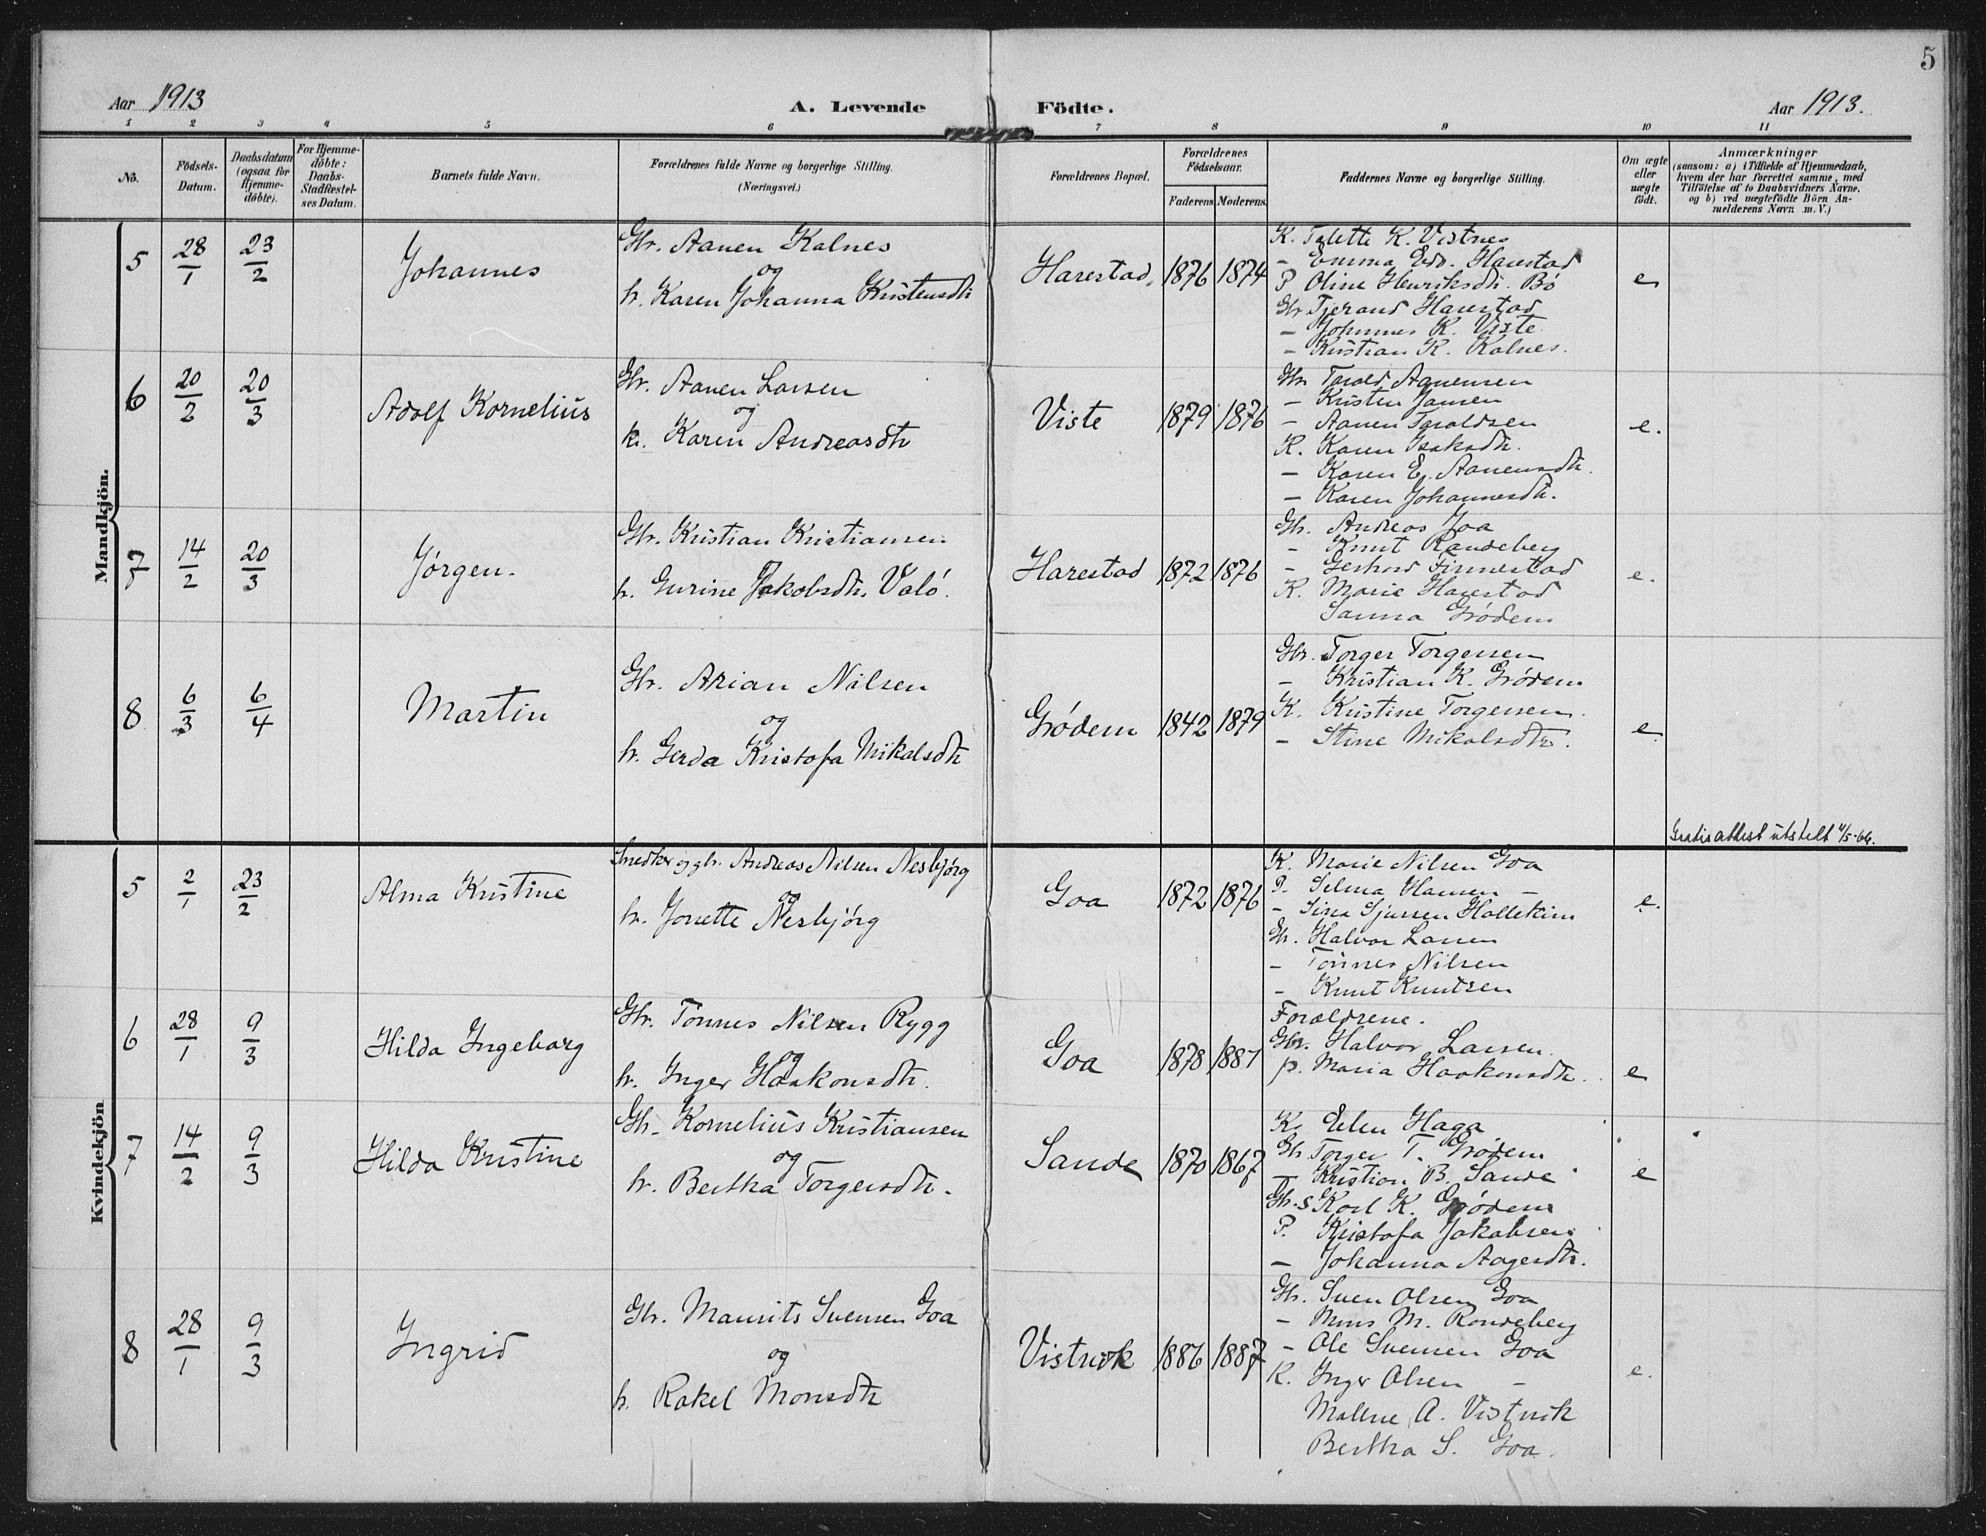 5
Aar 1913
A. Levende Födte.
Aar 1913.
1 2 3 4 5 6 7 8 9 10 11
No.
Födsels-
Datum.
Daabsdatum
(ogsaa for
Hjemme-
döbte).
For Hjemme-
döbte:
Daabs-
Stadfæstel-
ses Datum.
Barnets fulde Navn.
Forældrenes fulde Navne og borgerlige Stilling.
(Næringsvei.)
Forældrenes Bopæl.
Forældrenes
Födselsaar.
Faderens Moderens
Faddernes Navne og borgerlige Stilling.
Om ægte
eller
uægte
født.
Anmærkninger
(saasom: a) i Tilfælde af Hjemmedaab,
hvem der har forrettet samme, med
Tilföielse af to Daabsvidners Navne,
og b) ved uægtefödte Börn An-
melderens Navn m.V.)
Mandkjön.
5 28/1 23/2 Johannes
Gbr. Aanen Kalnes
og
h. Karen Johanna Kristensdtr
Harestad, 1876 1874
K. Talette K. Vistnes
– Emma Edv. Harestad
P Oline Henriksdtr. Bö
Gbr Tjerand Harestad
– Johannes K. Viste
– Kristian K. Kalnes.
e
6 20/2 20/3 Adolf Kornelius
Gbr. Aanen Larsen
og
h. Karen Andreasdtr
Viste 1879 1876
Gbr Tarald Aanensen
– Kristen Jansen
– Aanen Taraldsen
K. Karen Isaksdtr.
– Karen E. Aanensdtr.
– Karen Johannesdtr.
e.
7 14/2 20/3 Jørgen.
Gbr. Kristian Kristiansen
h. Gurine Jakobsdtr. Valö.
Harestad 1872 1876
Gbr. Andreas Joa
– Knut Randeberg
– Gerhard Finnestad
K. Marie Harestad
Sanna Grödem
e.
8 6/3 6/4 Martin
Gbr. Arian Nilsen
og
h. Gerda Kristofa Mikalsdtr
Grödem 1842 1879
Gbr. Torger Torgersen
– Kristian K. Grödem
K. Kristine Torgersen.
– Stine Mikalsdtr.
e.
Gratis attest utstedt 4/5-66.
Kvindekjön
5 2/1 23/2 Alma Kristine
Snedker og gbr. Andreas Nilsen Nesbjörg
og
h. Jonette Nesbjörg
Goa 1872 1876
K. Marie Nilsen Goa
P. Selma Hansen –
– Sina Sjursen Hollekim
Gbr. Halvor Larsen
– Tönnes Nilsen
– Knut Knutsen
e.
6 28/1 9/3 Hilda Ingeborg
Gbr. Tönnes Nilsen Rygg
og
h. Inger Haakonsdtr.
Goa 1878 1887
Forældrene.
Gbr. Halvor Larsen.
p. Maria Haakonsdtr.
e
7 14/2 9/3 Hilda Kristine
Gbr. Kornelius Kristiansen
og
h. Bertha Torgersdtr.
Sande 1870 1867
K. Elen Haga
Gbr Torger T. Grödem
– Kristian B. Sande
Gbr. s Karl K. Grödem
P. Kristofa Jakobsen
– Johanna Aagesdtr.
e
8 28/1 9/3 Ingrid
Gbr. Maurits Svensen Goa
og
h. Rakel Monsdtr
Vistvik 1886 1887
Gbr. Sven Olsen Goa
– Mons M. Randeberg
– Ole Svensen Goa
K. Inger Olsen –
Malene A. Vistvik
Bertha S. Goa.
e.